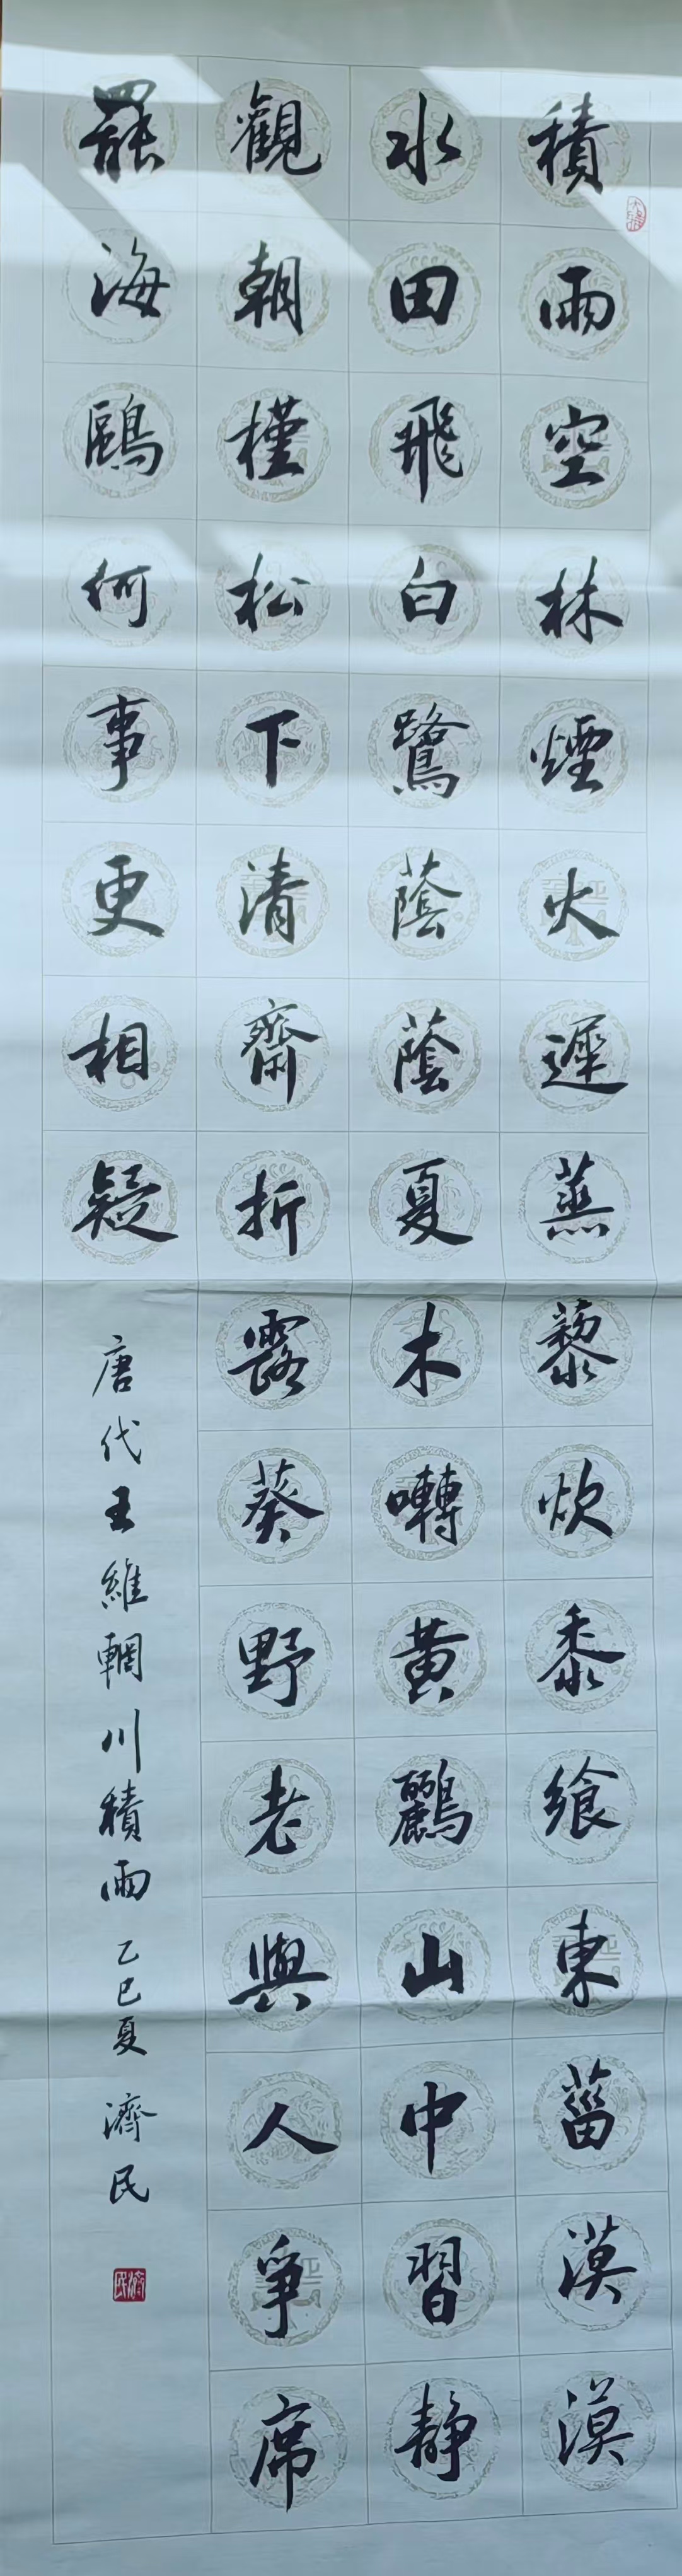 積雨空林煙火遲蒸藜炊黍飨東菑漠漠
水田飛白鷺蔭蔭夏木囀黄鸝山中習靜
觀朝槿松下清齋折露葵野老與人爭席
罷海鷗何事更相疑
唐代王維輞川積雨 乙巳夏 濟民
濟民